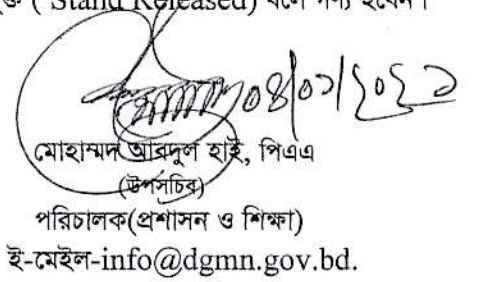 ( Stand Released) বলে গণ্য হবেন।
০৪/০১/২০২১
মোহাম্মদ আবদুল হাই, পিএএ
(উপসচিব)
পরিচালক(প্রশাসন ও শিক্ষা)
ই-মেইল-info@dgmn.gov.bd.